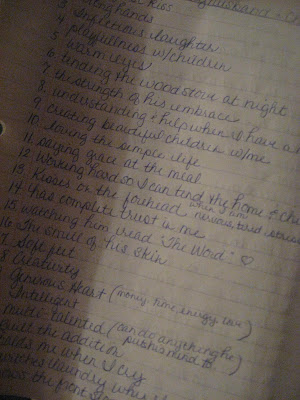 Kiss
3 hands
4 Infectious laughter
5 playfullness w/children
warm eyes
6 tending the wood stove at night
7 the strength of his embrace
8 understanding & help when I have a
9 creating beautiful children w/me
10 loving the simple life
11 saying grace at the meal
12 Working hard so I can tend the home &
13 Kisses on the forehead when I am nervous, tired,
14 has complete trust in me
15 watching him read "The Word" ♡
16 The smell of his skin
7 Soft feet
8 Creativity
Generous Heart (money, time, energy, love)
Intelligent
Multi-talented (can do anything he puts his mind to
the addition
holds me when I cry
laundry
the front